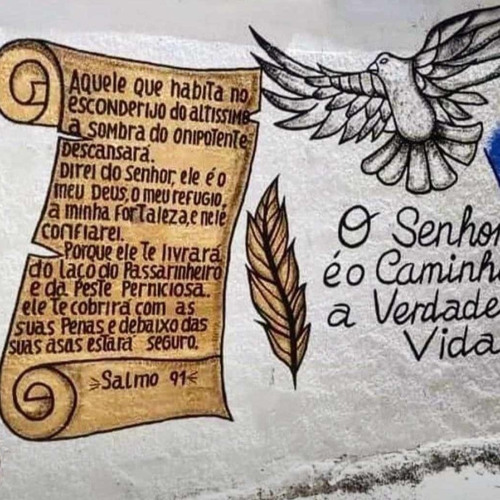 Aquele que habita no
esconderijo do altíssimo
a sombra do onipotente
Descansará.
Direi do Senhor, ele é o
meu Deus, o meu refugio,
a minha fortaleza, e nele
confiarei.
Porque ele te livrará
do laço do Passarinheiro
e da Peste Perniciosa.
ele te cobrirá com as
suas Penas e debaixo das
suas asas estará seguro.
Salmo 91
O Senhor
é o Caminh
a Verdade
Vida